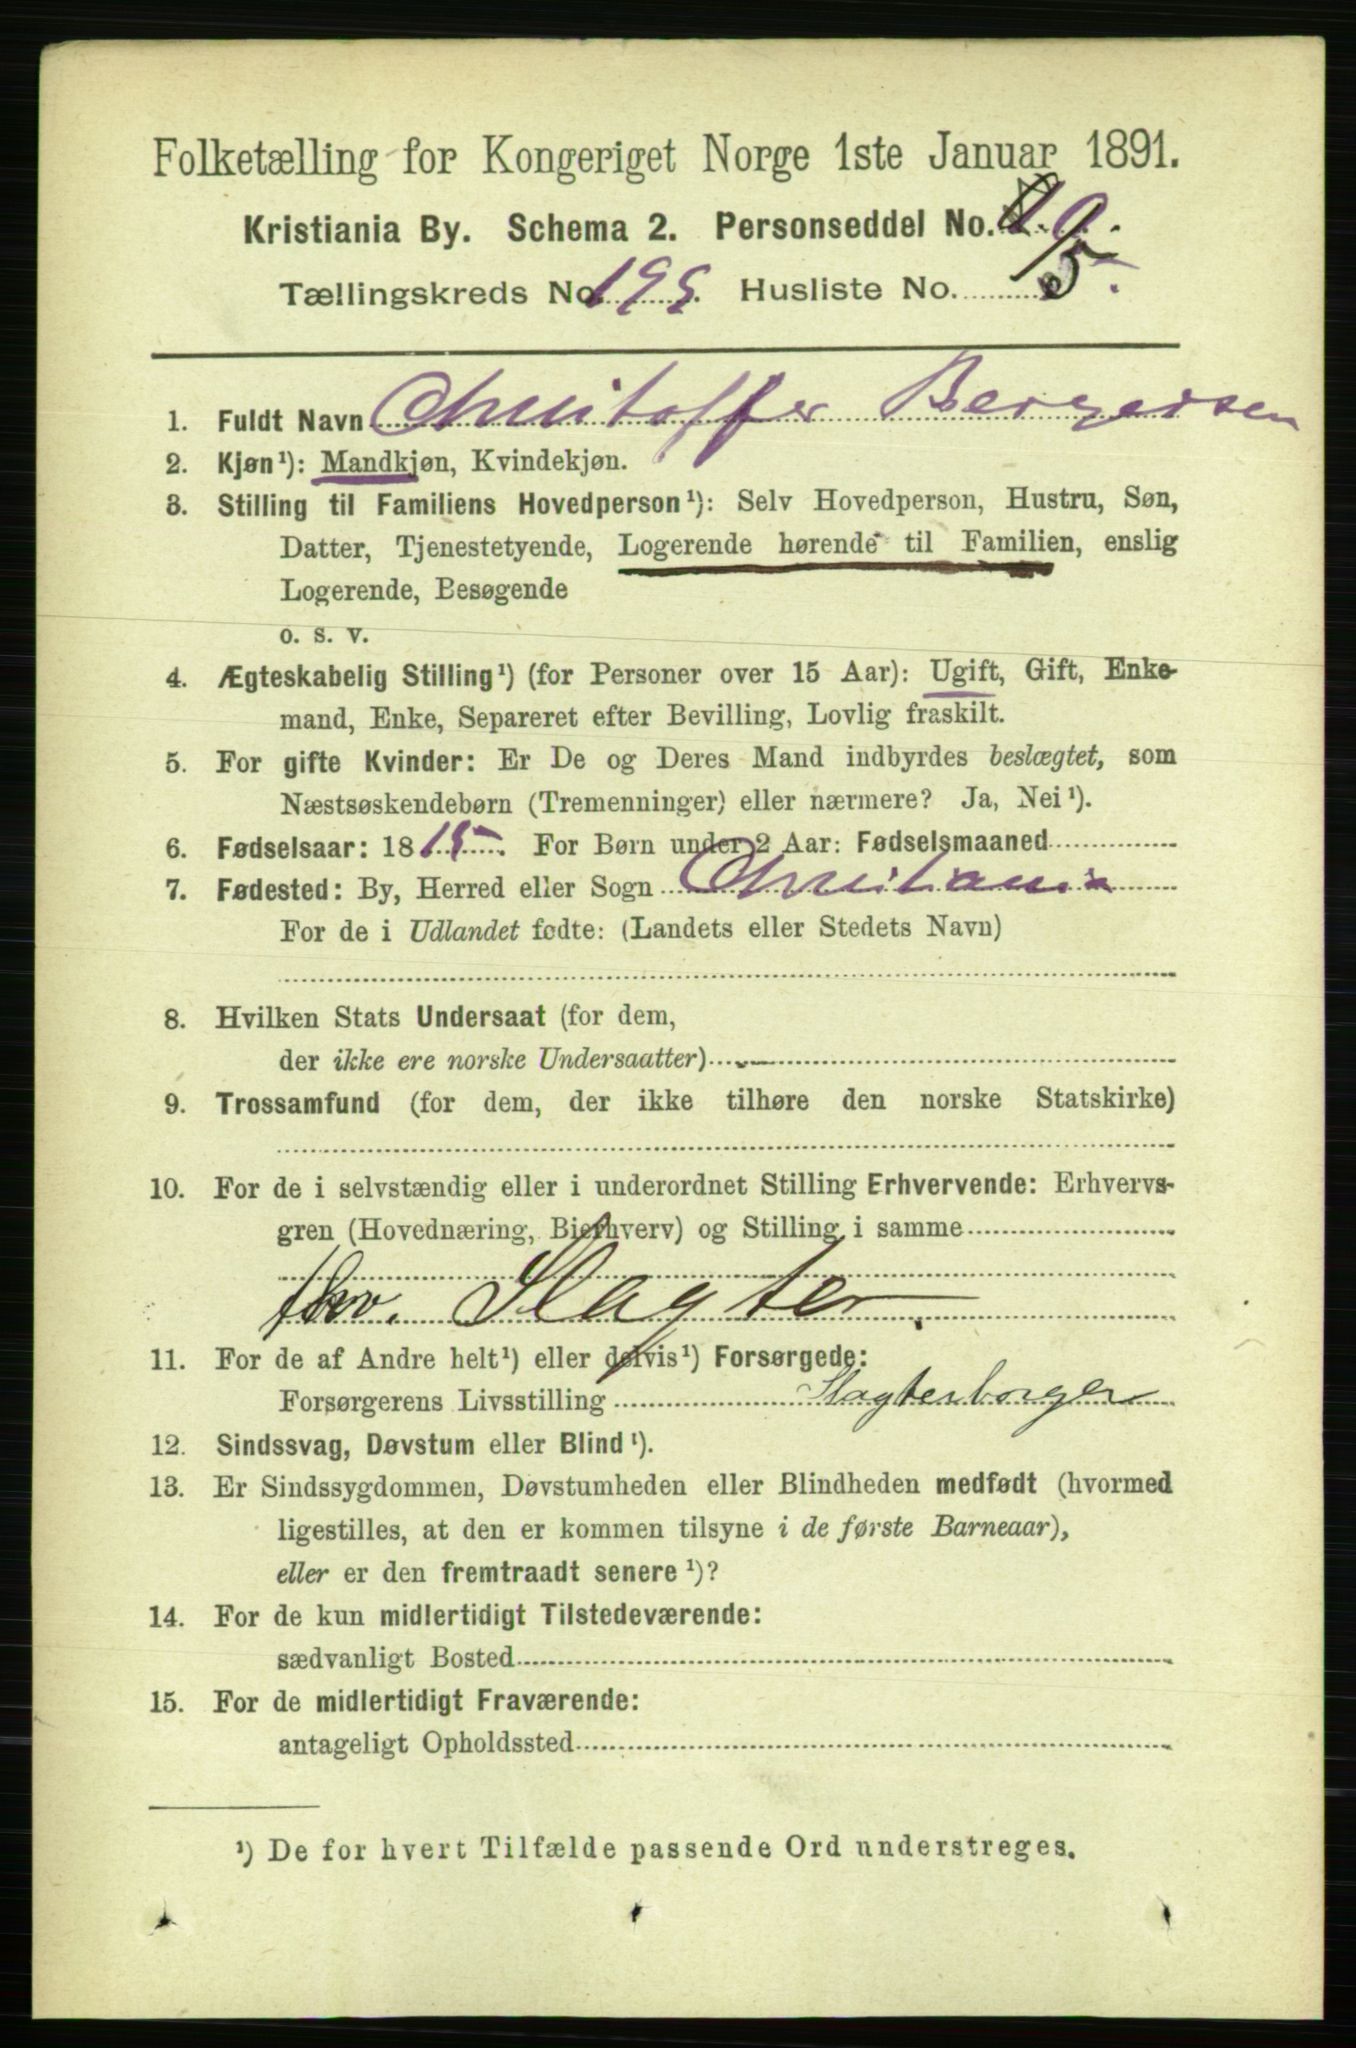 Folketælling for Kongeriget Norge 1ste Januar 1891.
Kristiania By. Schema 2. Personseddel No.
Tællingskreds No. 199. Husliste No. 5.
1. Fuldt Navn Christoffer Bergersen
2. Kjøn¹): Mandkjøn, Kvindekjøn.
3. Stilling til Familiens Hovedperson¹): Selv Hovedperson, Hustru, Søn,
Datter, Tjenestetyende, Logerende hørende til Familien, enslig
Logerende, Besøgende
o. s. v.
4. Ægteskabelig Stilling¹) (for Personer over 15 Aar): Ugift, Gift, Enke-
mand, Enke, Separeret efter Bevilling, Lovlig fraskilt.
5. For gifte Kvinder: Er De og Deres Mand indbyrdes beslægtet, som
Næstsøskendebørn (Tremenninger) eller nærmere? Ja, Nei¹).
6. Fødselsaar: 1815. For Børn under 2 Aar: Fødselsmaaned
7. Fødested: By, Herred eller Sogn Christiania
For de i Udlandet fødte: (Landets eller Stedets Navn)
8. Hvilken Stats Undersaat (for dem,
der ikke ere norske Undersaatter)
9. Trossamfund (for dem, der ikke tilhøre den norske Statskirke)
10. For de i selvstændig eller i underordnet Stilling Erhvervende: Erhvervs-
gren (Hovednæring, Bierhverv) og Stilling i samme
fhv. Slagter.
11. For de af Andre helt¹) eller delvis¹) Forsørgede:
Forsørgerens Livsstilling Slagterborger
12. Sindssvag, Døvstum eller Blind¹).
13. Er Sindssygdommen, Døvstumheden eller Blindheden medfødt (hvormed
ligestilles, at den er kommen tilsyne i de første Barneaar),
eller er den fremtraadt senere¹)?
14. For de kun midlertidigt Tilstedeværende:
sædvanligt Bosted
15. For de midlertidigt Fraværende:
antageligt Opholdssted
¹) De for hvert Tilfælde passende Ord understreges.